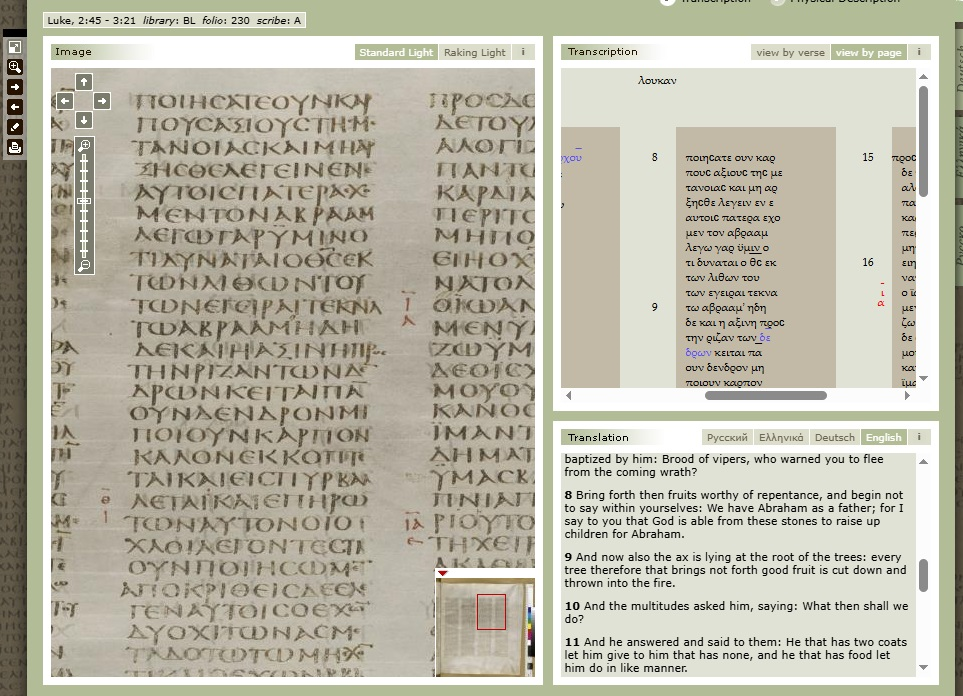 Luke, 2:45 - 3:21 library: BL folio: 230 scribe: A
Image
Standard Light
Raking Light
i
ΠΟΙΗϹΑΤΕΟΥΝΚΑΡ
ΠΟΥϹΑΞΙΟΥϹΤΗϹΜΕ
ΤΑΝΟΙΑϹΚΑΙΜΗΑΡ
ΞΗϹΘΕΛΕΓΕΙΝΕΝΕ
ΑΥΤΟΙϹΠΑΤΕΡΑΕΧΟ
ΜΕΝΤΟΝΑΒΡΑΑΜ
ΛΕΓΩΓΑΡΥΜΙΝΟ
ΤΙΔΥΝΑΤΑΙΟΘϹΕΚ
ΤΩΝΛΙΘΩΝΤΟΥ
ΤΩΝΕΓΕΙΡΑΙΤΕΚΝΑ
ΤΩΑΒΡΑΑΜΗΔΗ
ΔΕΚΑΙΗΑΞΙΝΗΠΡΟϹ
ΤΗΝΡΙΖΑΝΤΩΝΔΕ
ΔΡΩΝΚΕΙΤΑΙΠΑ
ΟΥΝΔΕΝΔΡΟΝΜΗ
ΠΟΙΟΥΝΚΑΡΠΟΝ
ΚΑΛΟΝΕΚΚΟΠΤΕ
ΤΑΙΚΑΙΕΙϹΠΥΡΒΑΛ
ΛΕΤΑΙΚΑΙΕΠΗΡΩ
ΤΩΝΑΥΤΟΝΟΙΟ
ΧΛΟΙΛΕΓΟΝΤΕϹΤΙ
ΟΥΝΠΟΙΗϹΩΜΕ
ΑΠΟΚΡΙΘΕΙϹΔΕΕΛΕ
ΓΕΝΑΥΤΟΙϹΟΕΧΩ
ΔΥΟΧΙΤΩΝΑϹΜΕ
ΤΑΔΟΤΩΤΩΜΗΕ
Transcription
view by verse
view by page
i
λουκαν
8 ποιηϲατε ουν καρ
πουϲ αξιουϲ τηϲ με
τανοιαϲ και μη αρ
ξηϲθε λεγειν εν ε
αυτοιϲ πατερα εχο
μεν τον αβρααμ
λεγω γαρ ϋμιν ο
τι δυναται ο θϲ εκ
των λιθων του
των εγειραι τεκνα
9 τω αβρααμ’ ηδη
δε και η αξινη προϲ
την ριζαν των δε
δρων κειται πα
ουν δενδρον μη
ποιουν καρπον
15
16
Translation
Русский
Ελληνικά
Deutsch
English
i
baptized by him: Brood of vipers, who warned you to flee
from the coming wrath?
8 Bring forth then fruits worthy of repentance, and begin not
to say within yourselves: We have Abraham as a father; for I
say to you that God is able from these stones to raise up
children for Abraham.
9 And now also the ax is lying at the root of the trees: every
tree therefore that brings not forth good fruit is cut down and
thrown into the fire.
10 And the multitudes asked him, saying: What then shall we
do?
11 And he answered and said to them: He that has two coats
let him give to him that has none, and he that has food let
him do in like manner.